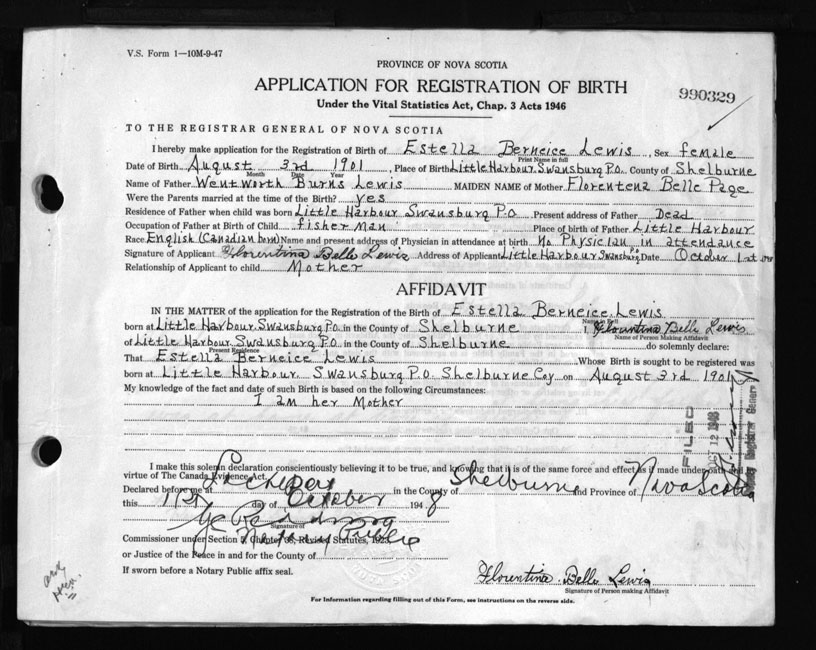 V.S. Form 1—10M-9-47
PROVINCE OF NOVA SCOTIA
APPLICATION FOR REGISTRATION OF BIRTH
990329
Under the Vital Statistics Act, Chap. 3 Acts 1946
TO THE REGISTRAR GENERAL OF NOVA SCOTIA
I hereby make application for the Registration of Birth of Estella Berneice Lewis, Sex female
Print Name in full
Date of Birth August 3rd 1901, Place of Birth Little Harbour Swansburg P.O. County of Shelburne
Month Date Year
Name of Father Wentworth Burns Lewis MAIDEN NAME of Mother Florentena Belle Page
Were the Parents married at the time of the Birth? yes
Residence of Father when child was born Little Harbour Swansburg P.O Present address of Father Dead
Occupation of Father at Birth of Child fisher Man Place of birth of Father Little Harbour
Race English (Canadian born) Name and present address of Physician in attendance at birth No Physician in attendance
Signature of Applicant Florentina Belle Lewis Address of Applicant Little Harbour Swansburg P.O Date October 1st
Relationship of Applicant to child Mother
AFFIDAVIT
IN THE MATTER of the application for the Registration of the Birth of Estella Berneice Lewis
born at Little Harbour Swansburg P.O. in the County of Shelburne I, Flountina Belle Lewis
Name of Person Making Affidavit
of Little Harbour Swansburg P.O. in the County of Shelburne do solemnly declare:
Present Residence
That Estella Berneice Lewis Whose Birth is sought to be registered was
born at Little Harbour Swansburg P.O. Shelburne Coy on August 3rd 1901
My knowledge of the fact and date of such Birth is based on the following Circumstances:
I am her Mother
FILED
OCT 12 1948
I make this solemn declaration conscientiously believing it to be true, and knowing that it is of the same force and effect as if made under oath and by
virtue of The Canada Evidence Act.
Declared before me at in the County of Shelburne and Province of Nova Scotia
this 1st day of October 1948
Signature of
Commissioner under Section Chapter 38, Revised Statutes, 1923
Notary Public
or Justice of the Peace in and for the County of
If sworn before a Notary Public affix seal.
Florentina Belle Lewis
Signature of Person making Affidavit
For Information regarding filling out of this Form, see instructions on the reverse side.